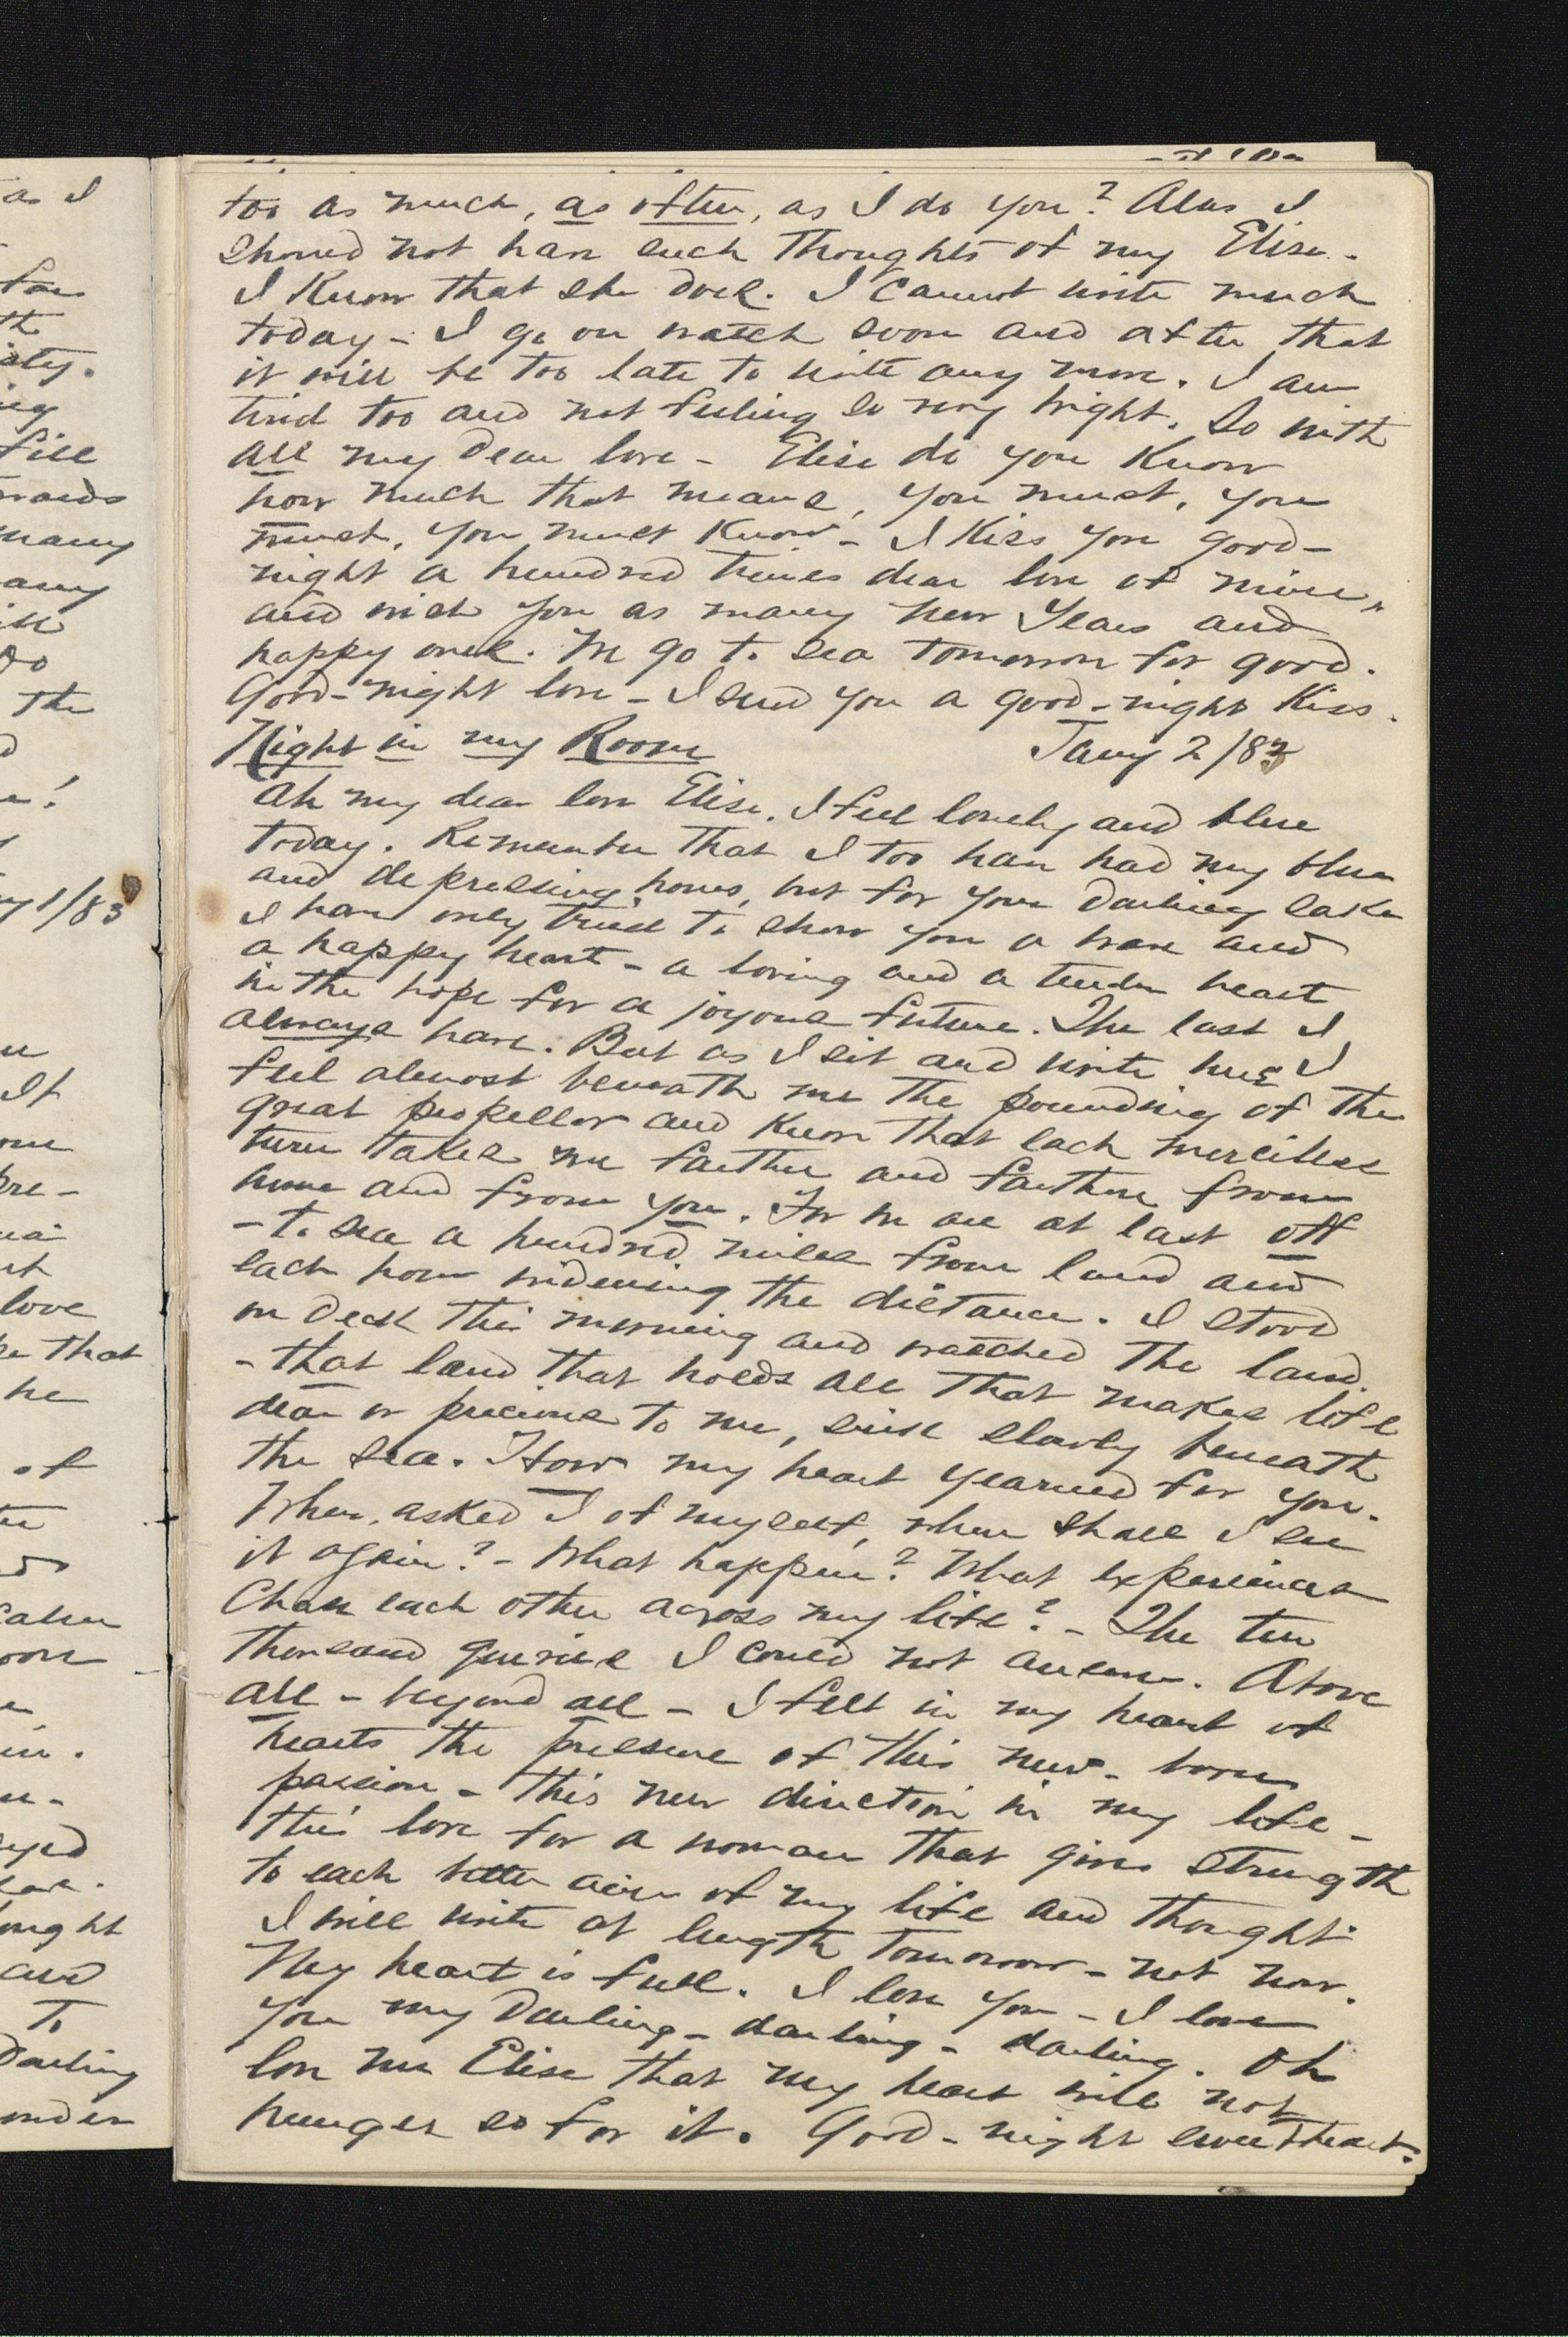 too as much, as often, as I do you? Alas I
should not have such thoughts of my Elise.
I know that she does. I cannot write much
today - I go on watch soon and after that
it will be too late to write any more. I am
tired too and not feeling so very bright. So with
all my dear love - Elise do you know
how much that means, you must, you
must, you must know - I kiss you good-
night a hundred times dear love of mine,
and wish you as many New Years and
happy ones. We go to sea tomorrow for good.
Good-night love - I send you a good-night kiss.
Night in my Room Jany 2/83
Ah my dear love Elise. I feel lonely and blue
today. Remember that I too have had my blue
and depressing hours, but for your darling sake
I have only tried to show you a brave and
a happy heart - a loving and a tender heart
in the hope for a joyous future. The last I
always have. But as I sit and write here I
feel almost beneath me the pounding of the
great propellor and know that each merciless
turn takes me farther and farther from
home and from you. For we are at last off
- to sea a hundred miles from land and
each hour widening the distance. I stood
on deck this morning and watched the land
- that land that holds all that makes life
dear or precious to me, sink slowly beneath
the sea. How my heart yearned for you.
When, asked I of myself, when shall I see
it again? - What happen? What experiences
Chase each other across my life? - The ten
thousand queries I could not answer. Above
all - beyond all - I felt in my heart of
hearts the pressure of this new-born
passion - this new direction in my life -
this love for a woman that gives strength
to each better aim of my life and thought
I will write at length tomorrow - not now.
My heart is full. I love you - I love
you my darling - darling - darling. Oh
love me Elise that my heart will not
hunger so for it. Good-night sweetheart.
as I
many
The
y 1/83
It
love
that
he
of
ought
and
To
Darling